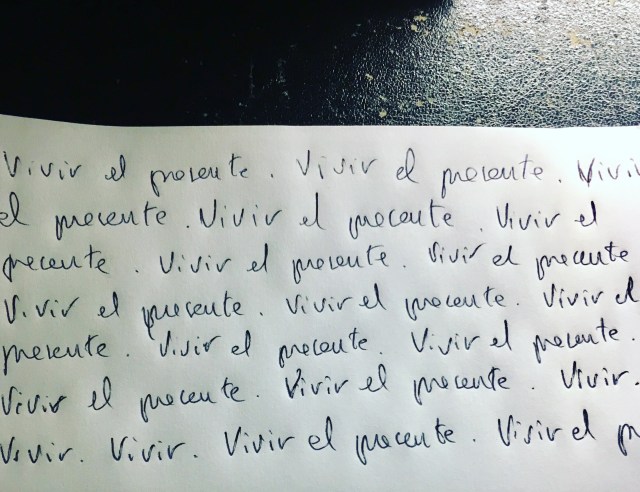 Vivir el presente. Vivir el presente. Vivi
el presente. Vivir el presente. Vivir el
presente. Vivir el presente. Vivir el presente
Vivir el presente. Vivir el presente. Vivir el
presente. Vivir el presente. Vivir el presente.
Vivir el presente. Vivir el presente. Vivir.
Vivir. Vivir. Vivir el presente. Vivir el pr